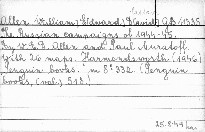 Allen William Edward David GB/1535
The Russian campaigns of 1944-45.
by W. E. D. Allen and Paul Muratoff.
With 26 maps. Harmondsworth (1946)
Penguin books. in 8° 332. (Penguin
books, (vol.) 518.)
25.8.49